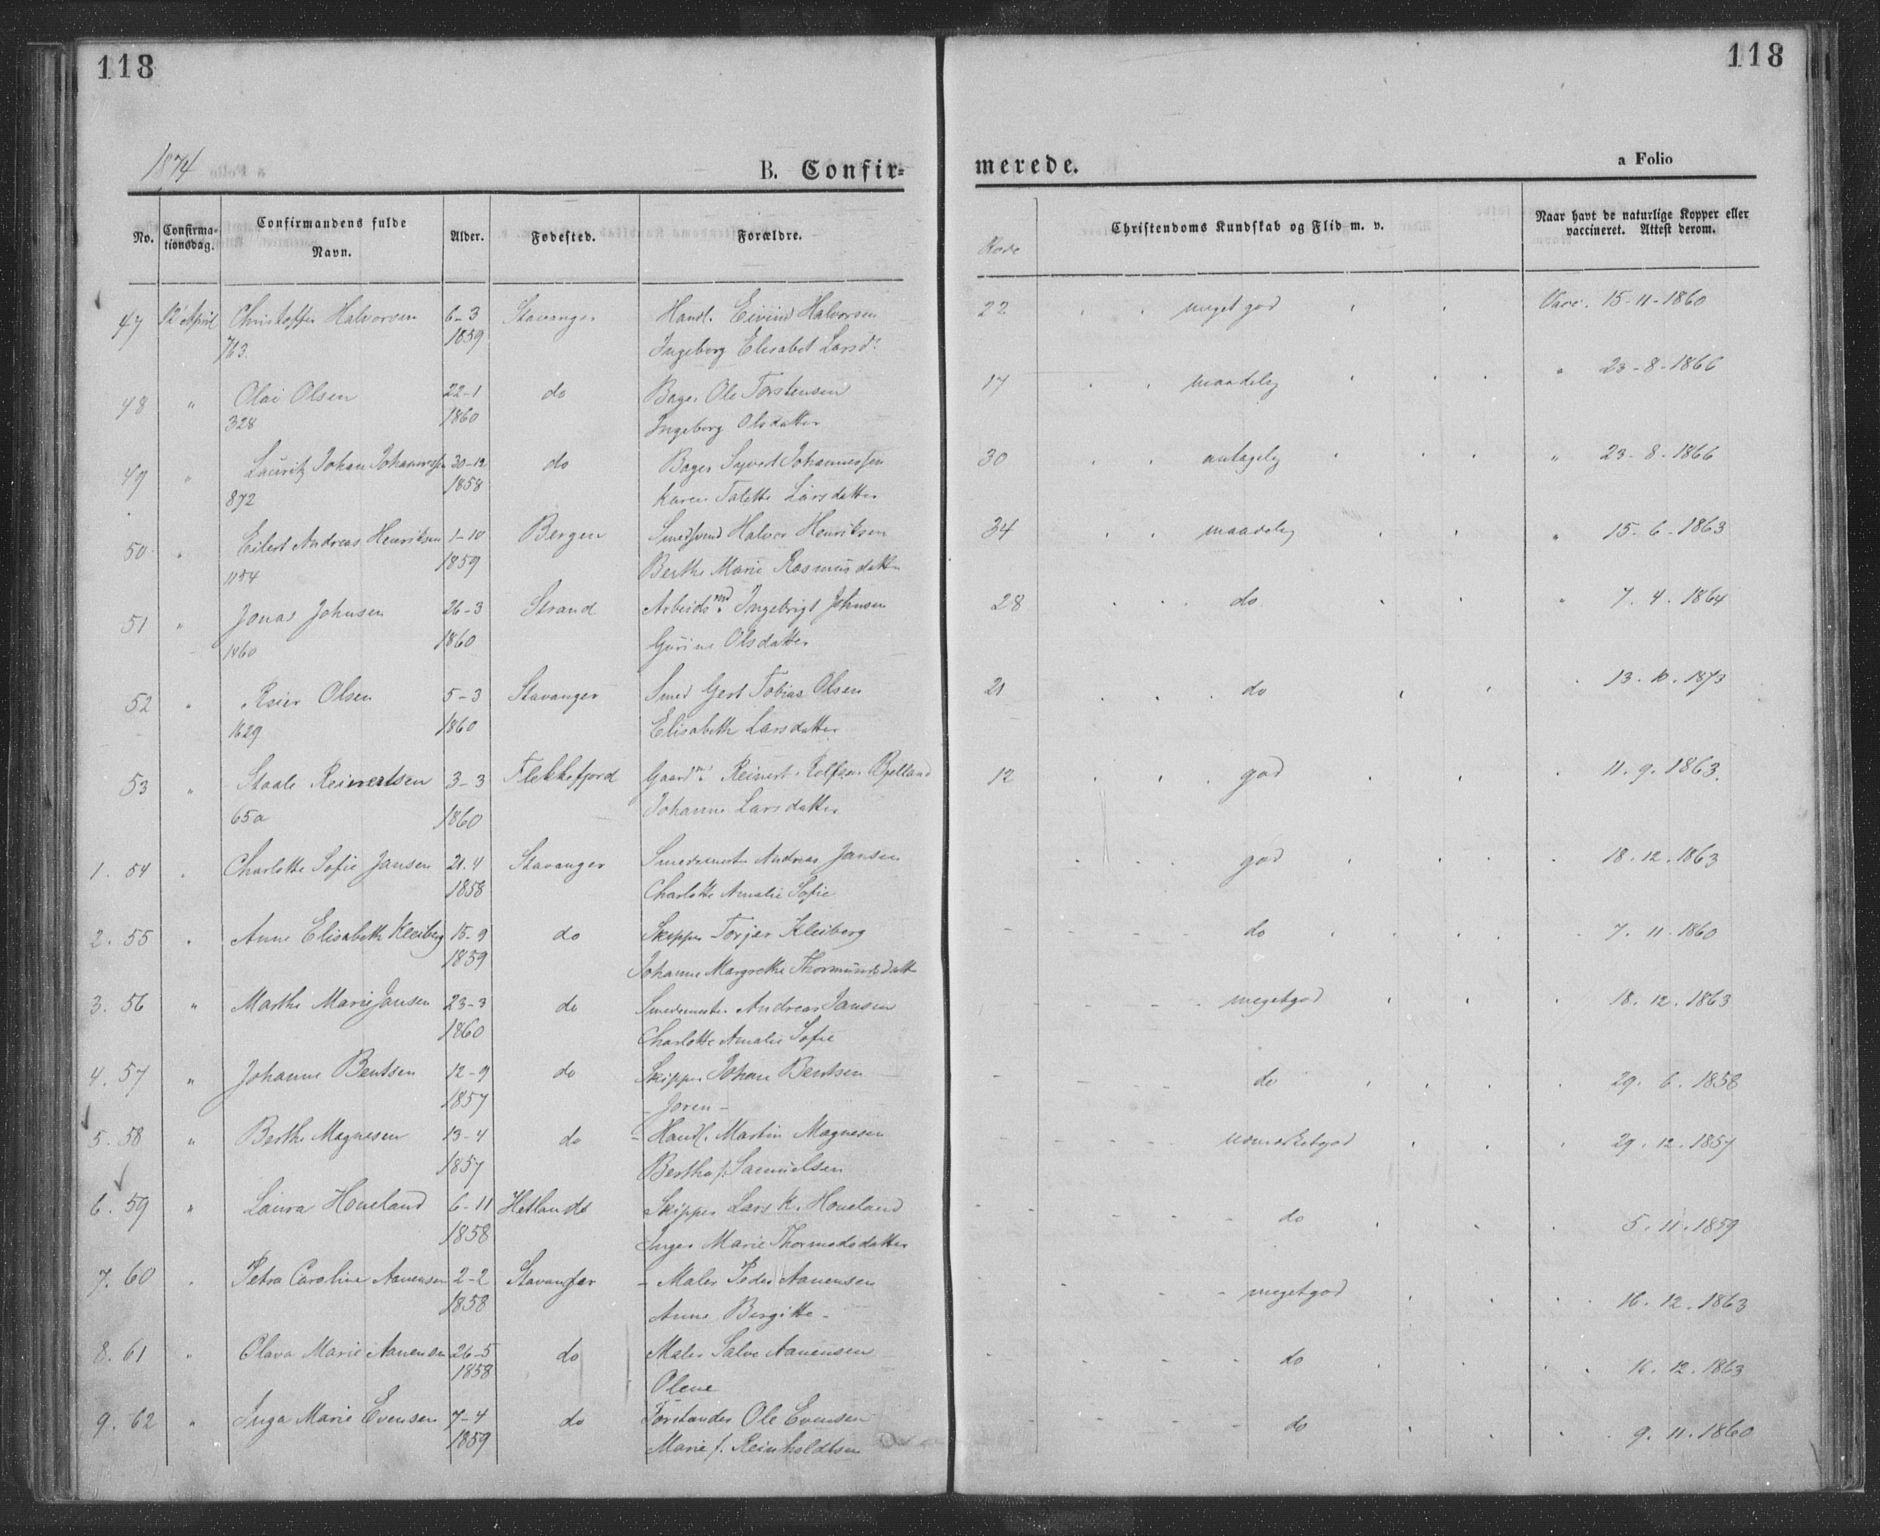 118
118
1874
B. Confir-
merede.
a Folio
No.
Confirma-
tionsdag.
Confirmandens fulde
Navn.
Alder.
Fødested.
Forældre.
Christendoms Kundskab og Flid m. v.
Naar havt de naturlige Kopper eller
vaccineret. Attest derom.
47 12 April Christoffer Halvorsen 6-3 Stavanger Handl. Eivind Halvorsen 22 meget god Vacc. 15-11-1860
763. 1859 Ingeborg Elisabet Larsdr.
48 " Olai Olsen 22-1 do Bager Ole Torstensen 17 maadelig " 23-8-1866
328 1860 Ingeborg Olsdatter
49 " Lauritz Johan Johannesen 30-12 do Bager Sivert Johannessen 30 antagelig " 23-8-1866
872 1858 Karen Talette Larsdatter
50 " Eilert Andreas Henriksen 1-10 Bergen Smedsvend Halvor Henriksen 34 maadelig " 15-6-1863
1154 1859 Berthe Marie Rasmusdatter
51 " Jonas Johnsen 26-3 Strand Arbeidsmd. Ingebrigt Johnsen 28 do " 7.4.1864
1460 1860 Gurine Olsdatter
52 " Reier Olsen 5-3 Stavanger Smed Gert Tobias Olsen 21 do 13.10.1873
1629 1860 Elisabeth Larsdatter
53 " Staale Reinertsen 3-3 Flekkefjord Gaardm. Reinert Rolfsen Bjelland 12 god 11.9.1863.
65a 1860 Johanne Larsdatter
1. 54 " Charlotte Sofie Jansen 21.4 Stavanger Smedemester Andreas Jansen god 18.12.1863
1858 Charlotte Amalie Sofie
2. 55 " Anne Elisabeth Kleiberg 15-9 do Skipper Torjer Kleiberg do 7.11.1860
1859 Johanne Margrethe Thormundsdatt
3. 56 " Marthe Marie Jansen 23-3 do Smedemester Andreas Jansen megetgod 18.12.1863
1860 Charlotte Amalie Sofie
4. 57 " Johanne Bentsen 12-9 do Skipper Johan Bentsen do 29.6.1858
1857 - Joren -
5. 58 " Berthe Magnesen 13-4 do - Handl. Martin Magnesen udmærketgod 29.12.1857
1857 Bertha f. Samuelsen
6. 59 " Laura Houeland 6-11 Hetlands Skipper Lars K. Houeland do 5.11.1859
1858 Inger Marie Thormodsdatter
7. 60 " Petra Caroline Aanensen 2-2 Stavanger - Maler Peder Aanensen megetgod 16.12.1863
1858 Anne Birgitte -
8. 61 " Olava Marie Aanensen 26-5 do Maler Salve Aanensen do 16.12.1863
1858 Olene
9. 62 " Inga Marie Evensen 7-4 do Forstander Ole Evensen do 9.11.1860
1859 Marie f. Reinholdtsen